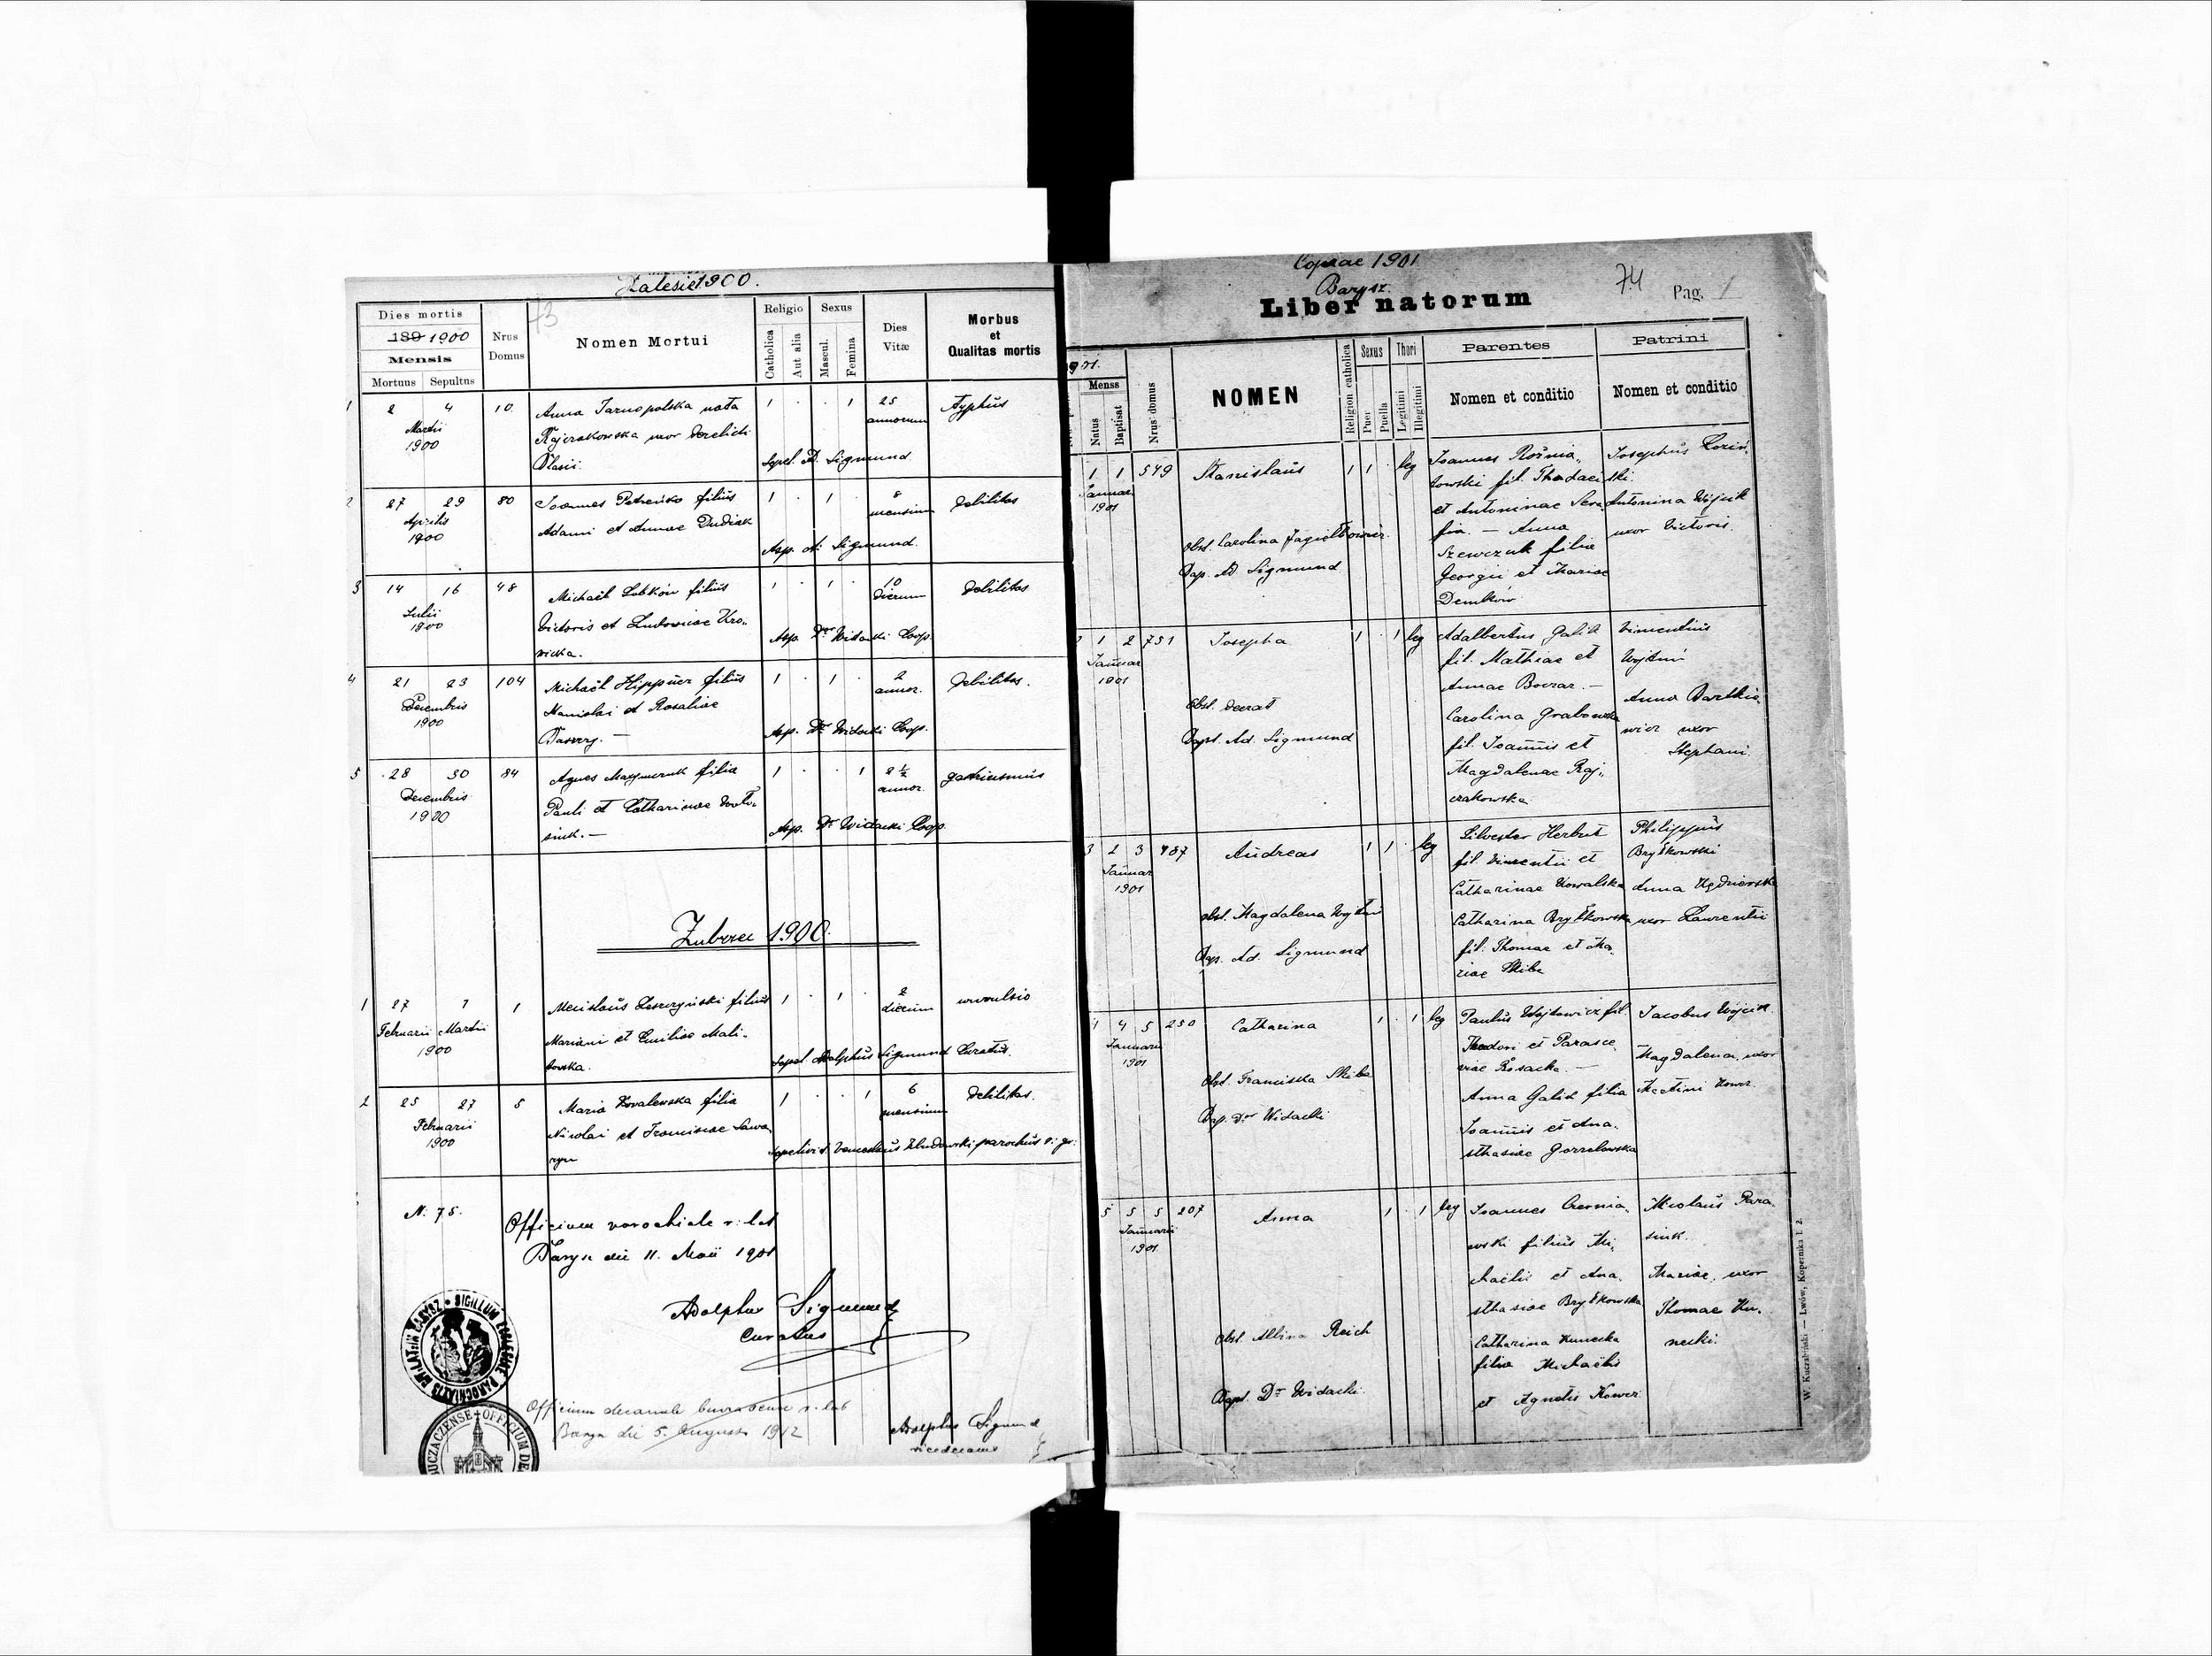 Zalesie 1900.
73
Dies mortis
189 1900
Mensis
Mortuus Sepultus
Nrus Domus
Nomen Mortui
Religio
Catholica
Aut alia
Sexus
Mascul.
Femina
Dies Vitæ
Morbus et Qualitas mortis
1 2 4 10 Anna Tarnopolska nata 1 . . 1 25 Typhus
Martii annorum
1900 Rajczakowska uxor derelicti
Blasii. Sepel. A. Sigmund
2 27 29 80 Joannes Petrenko filius 1 . 1 . 8 debilitas
Aprilis mensium
1900 Adami et Annae Dudiak
Asp. A. Sigmund.
3 14 16 48 Michaël Lobkow filius 1 . 1 . 10 debilitas
Julii dierum
1900 Victoris et Ludovicae Kro-
nicka. Asp. Dr Widacki Coop.
4 21 23 104 Michaël Hippner filius 1 . 1 . 2 debilitas.
Decembris annor.
1900 Stanislai et Rosaliae
Asp. Dr Widacki Coop.
5 28 30 84 Agnes filia 1 . . 1 2 ½
Decembris annor.
1900 Pauli et Catharinae
sink.— Asp. Dr Widacki Coop.
Zubrzec 1900.
1 27 1 1 Mecislaüs Leszczynski filius 1 . 1 . 2
Februarii Martii dierum
1900 Mariani et Emiliae Mali-
towska. Sepel. Adolphus Sigmund Curatus.
2 25 27 5 Maria Kovalewska filia 1 . . 1 6 debilitas.
Februarii mensium
1900 Nicolai et Franciscae
Sepelivit parochus
N. 75.
Officium parochiale r: lat
Barysz die 11. Maii 1901
Adolphus Sigmund
Curatus
SIGILLUM ECCLESIAE PAROCHIALIS RIT. LATIN BARYSZ
Officium decanale r: lat
Barysz die 5. Augusti 1912
Adolphus Sigmund
vicedecanus
BUCZACZENSE + OFFICIUM DE
Copiae 1901
Barysz.
74
Liber natorum
Pag. 1
Menss
Natus
Baptisat
Nrus domus
NOMEN
Religion catholica
Sexus
Puer
Puella
Thori
Legitimi
Illegitimi
Parentes
Nomen et conditio
Patrini
Nomen et conditio
1 1 549 Stanislaus 1 1 . leg Joannes Rożnia-
Januar
1901 towski fil. Thadaei
et Antoninae Sera-
fin. — Anna
Szewczuk filia
Georgii et Mariae
Demkow
Josephus
Antonina Wójcik
uxor Victoris.
Obst. Carolina Jagiełłowicz.
Bap. Ad. Sigmund
1 2 751 Josepha 1 . 1 leg Adalbertus Galik
Januar
1901 fil. Mathiae et
Annae —
Carolina Grabowska
fil. Joannis et
Magdalenae Raj-
czakowska
Vincentius
Anna Bartkie-
wicz uxor
Stephani.
Obst. deerat
Bapt. Ad. Sigmund
3 2 3 487 Andreas 1 1 . leg Silvester Herbut
Januar
1901 fil. Vincentii et
Catharinae Kowalska
Catharina Bryłkowska
fil. Thomae et Ma-
riae Skiba
Philippus
Bryłkowski
Anna
uxor Laurentii
Obst. Magdalena
Bap. Ad. Sigmund
4 5 250 Catharina 1 . 1 leg Paulus Wójtowicz fil.
Januarii
1901 Theodori et Parasce-
viae Kosacka. —
Anna Galik filia
Joannis et Ana-
sthasiae
Jacobus Wójcik
Magdalena, uxor
Martini
Obst. Franciska Skiba
Bap. Dr Widacki
5 5 5 207 Anna 1 . 1 leg Joannes Czernia-
Januarii
1901 wski filius Mi-
chaëlis et Ana-
sthasiae Bryłkowska
Catharina Kunecka
filia Michaëlis
et Agnetis Kowcz
Nicolaus Para-
sink.
Mariae, uxor
Thomae Ku-
necki.
Obst. Albina Reich
Bapt. Dr Widacki
W. Kuczabiński — Lwów, Kopernika l. 2.